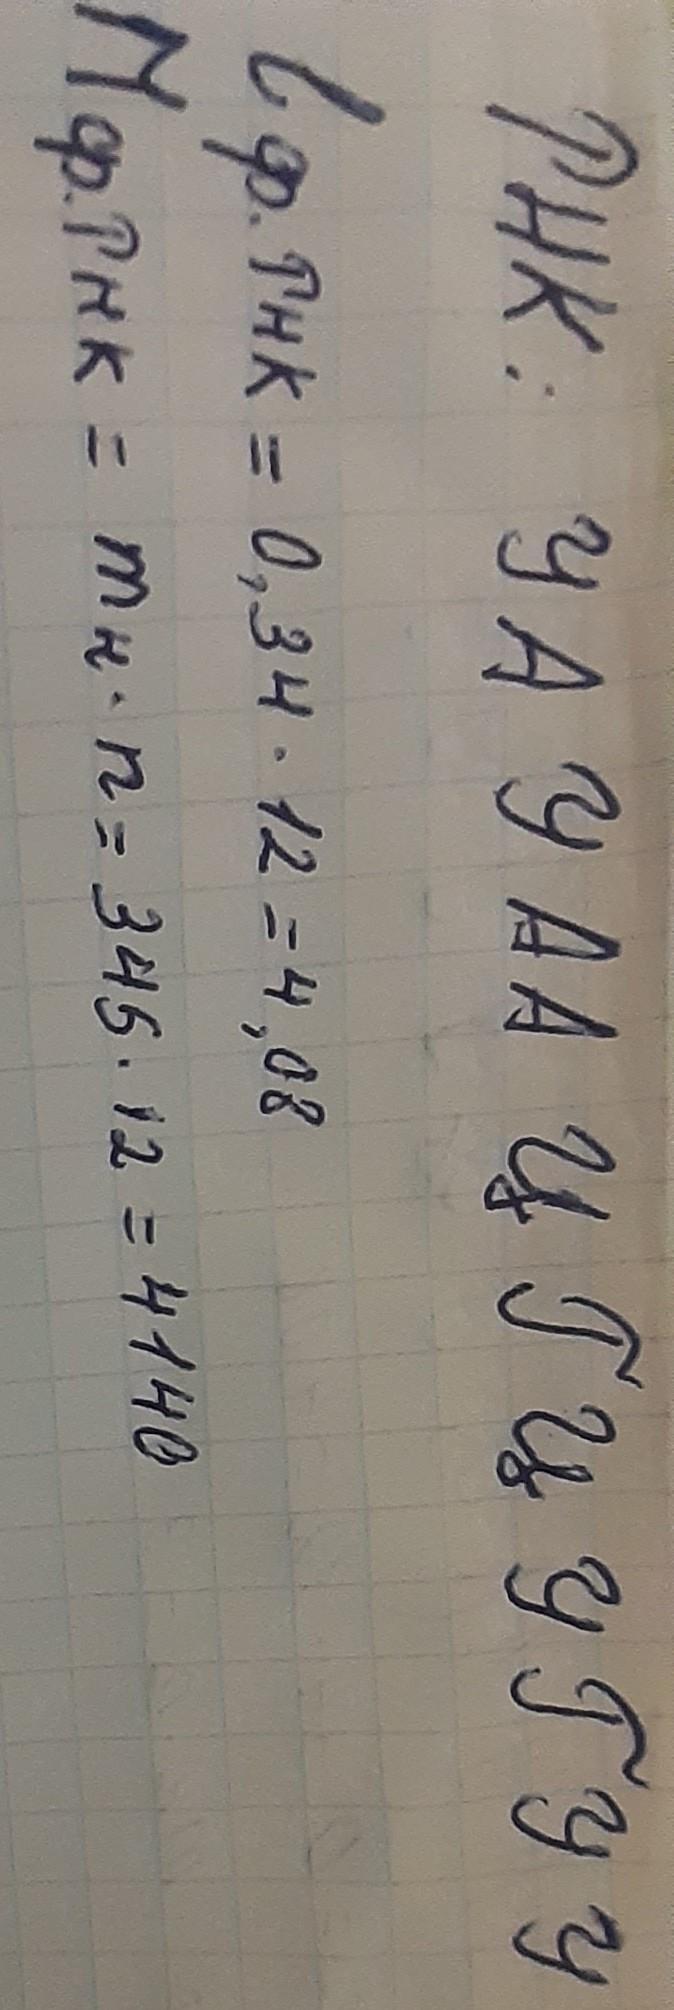 РНК: У А У А А Ц Г Ц У Г У У
Lф.РНК = 0,34 · 12 = 4,08
Mф.РНК = mн · n = 345 · 12 = 4140